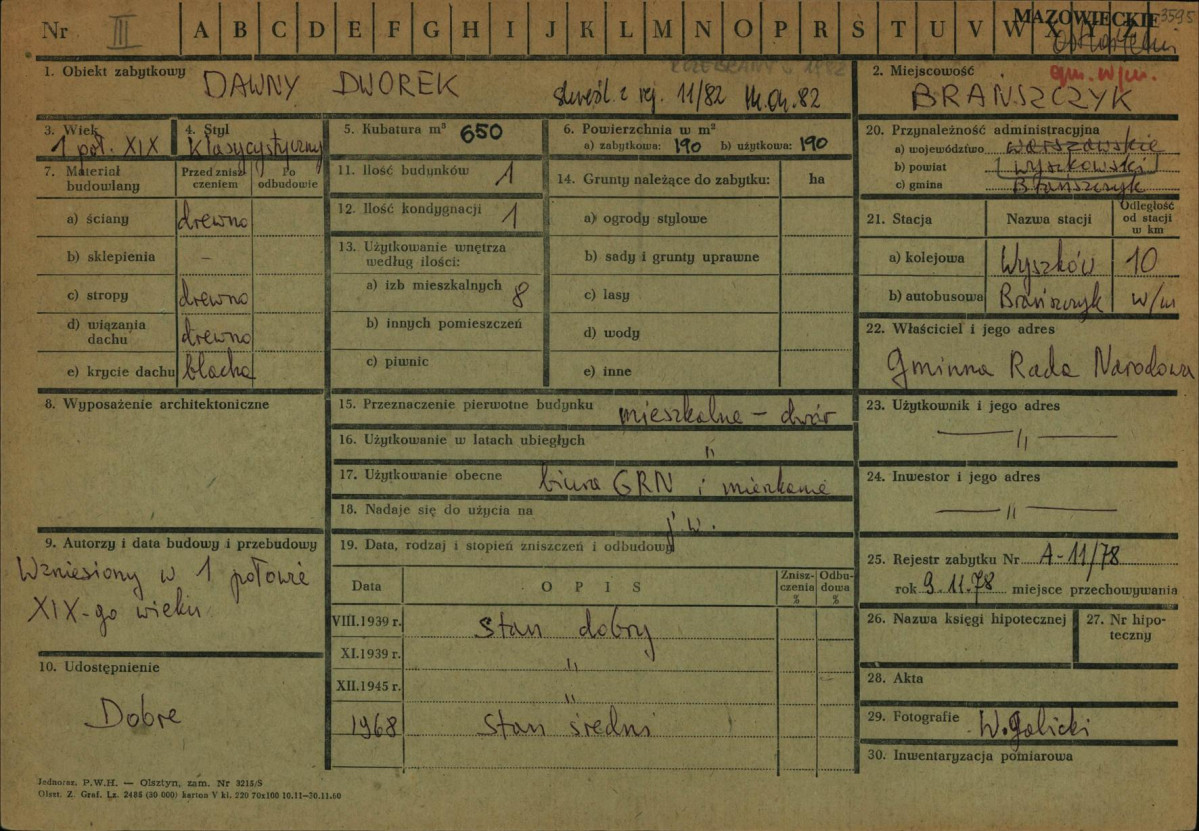 Nr III A B C D E F G H I J K L M N O P R S T U V W X Y Z
MAZOWIECKIE 3595
ROZEBRANY w 1982
1. Obiekt zabytkowy DAWNY DWOREK
skreśl. z rej. 11/82
2. Miejscowość gm. w/m.
BRAŃSZCZYK
3. Wiek
1 poł. XIX
4. Styl
Klasycystyczny
5. Kubatura m³ 650
6. Powierzchnia w m²
a) zabytkowa: 190 b) użytkowa: 190
7. Materiał budowlany
Przed zniszczeniem
Po odbudowie
a) ściany drewno
b) sklepienia –
c) stropy drewno
d) wiązania dachu drewno
e) krycie dachu blacha
8. Wyposażenie architektoniczne
9. Autorzy i data budowy i przebudowy
Wzniesiony w 1 połowie
XIX-go wieku
10. Udostępnienie
Dobre
11. Ilość budynków 1
12. Ilość kondygnacji 1
13. Użytkowanie wnętrza
według ilości:
a) izb mieszkalnych 8
b) innych pomieszczeń
c) piwnic
14. Grunty należące do zabytku: ha
a) ogrody stylowe
b) sady i grunty uprawne
c) lasy
d) wody
e) inne
15. Przeznaczenie pierwotne budynku mieszkalne – dwór
16. Użytkowanie w latach ubiegłych „
17. Użytkowanie obecne biura GRN i mieszkanie
18. Nadaje się do użycia na j.w.
19. Data, rodzaj i stopień zniszczeń i odbudowy
Data OPIS Zniszczenia % Odbudowa %
VIII.1939 r. Stan dobry
XI.1939 r. „
XII.1945 r. „
1968 Stan średni
20. Przynależność administracyjna
a) województwo warszawskie
b) powiat wyszkowski
c) gmina Brańszczyk
21. Stacja Nazwa stacji Odległość od stacji w km
a) kolejowa Wyszków 10
b) autobusowa Brańszczyk w/m
22. Właściciel i jego adres
Gminna Rada Narodowa
23. Użytkownik i jego adres
— „ —
24. Inwestor i jego adres
— „ —
25. Rejestr zabytku Nr A-11/78
rok 9.11.78 miejsce przechowywania
26. Nazwa księgi hipotecznej
27. Nr hipoteczny
28. Akta
29. Fotografie W. Golicki
30. Inwentaryzacja pomiarowa
Jednoraz. P.W.H. — Olsztyn, zam. Nr 3215/S
Olszt. Z. Graf. Lz. 2488 (30 000) karton V kl. 220 70x100 10.11–30.11.60